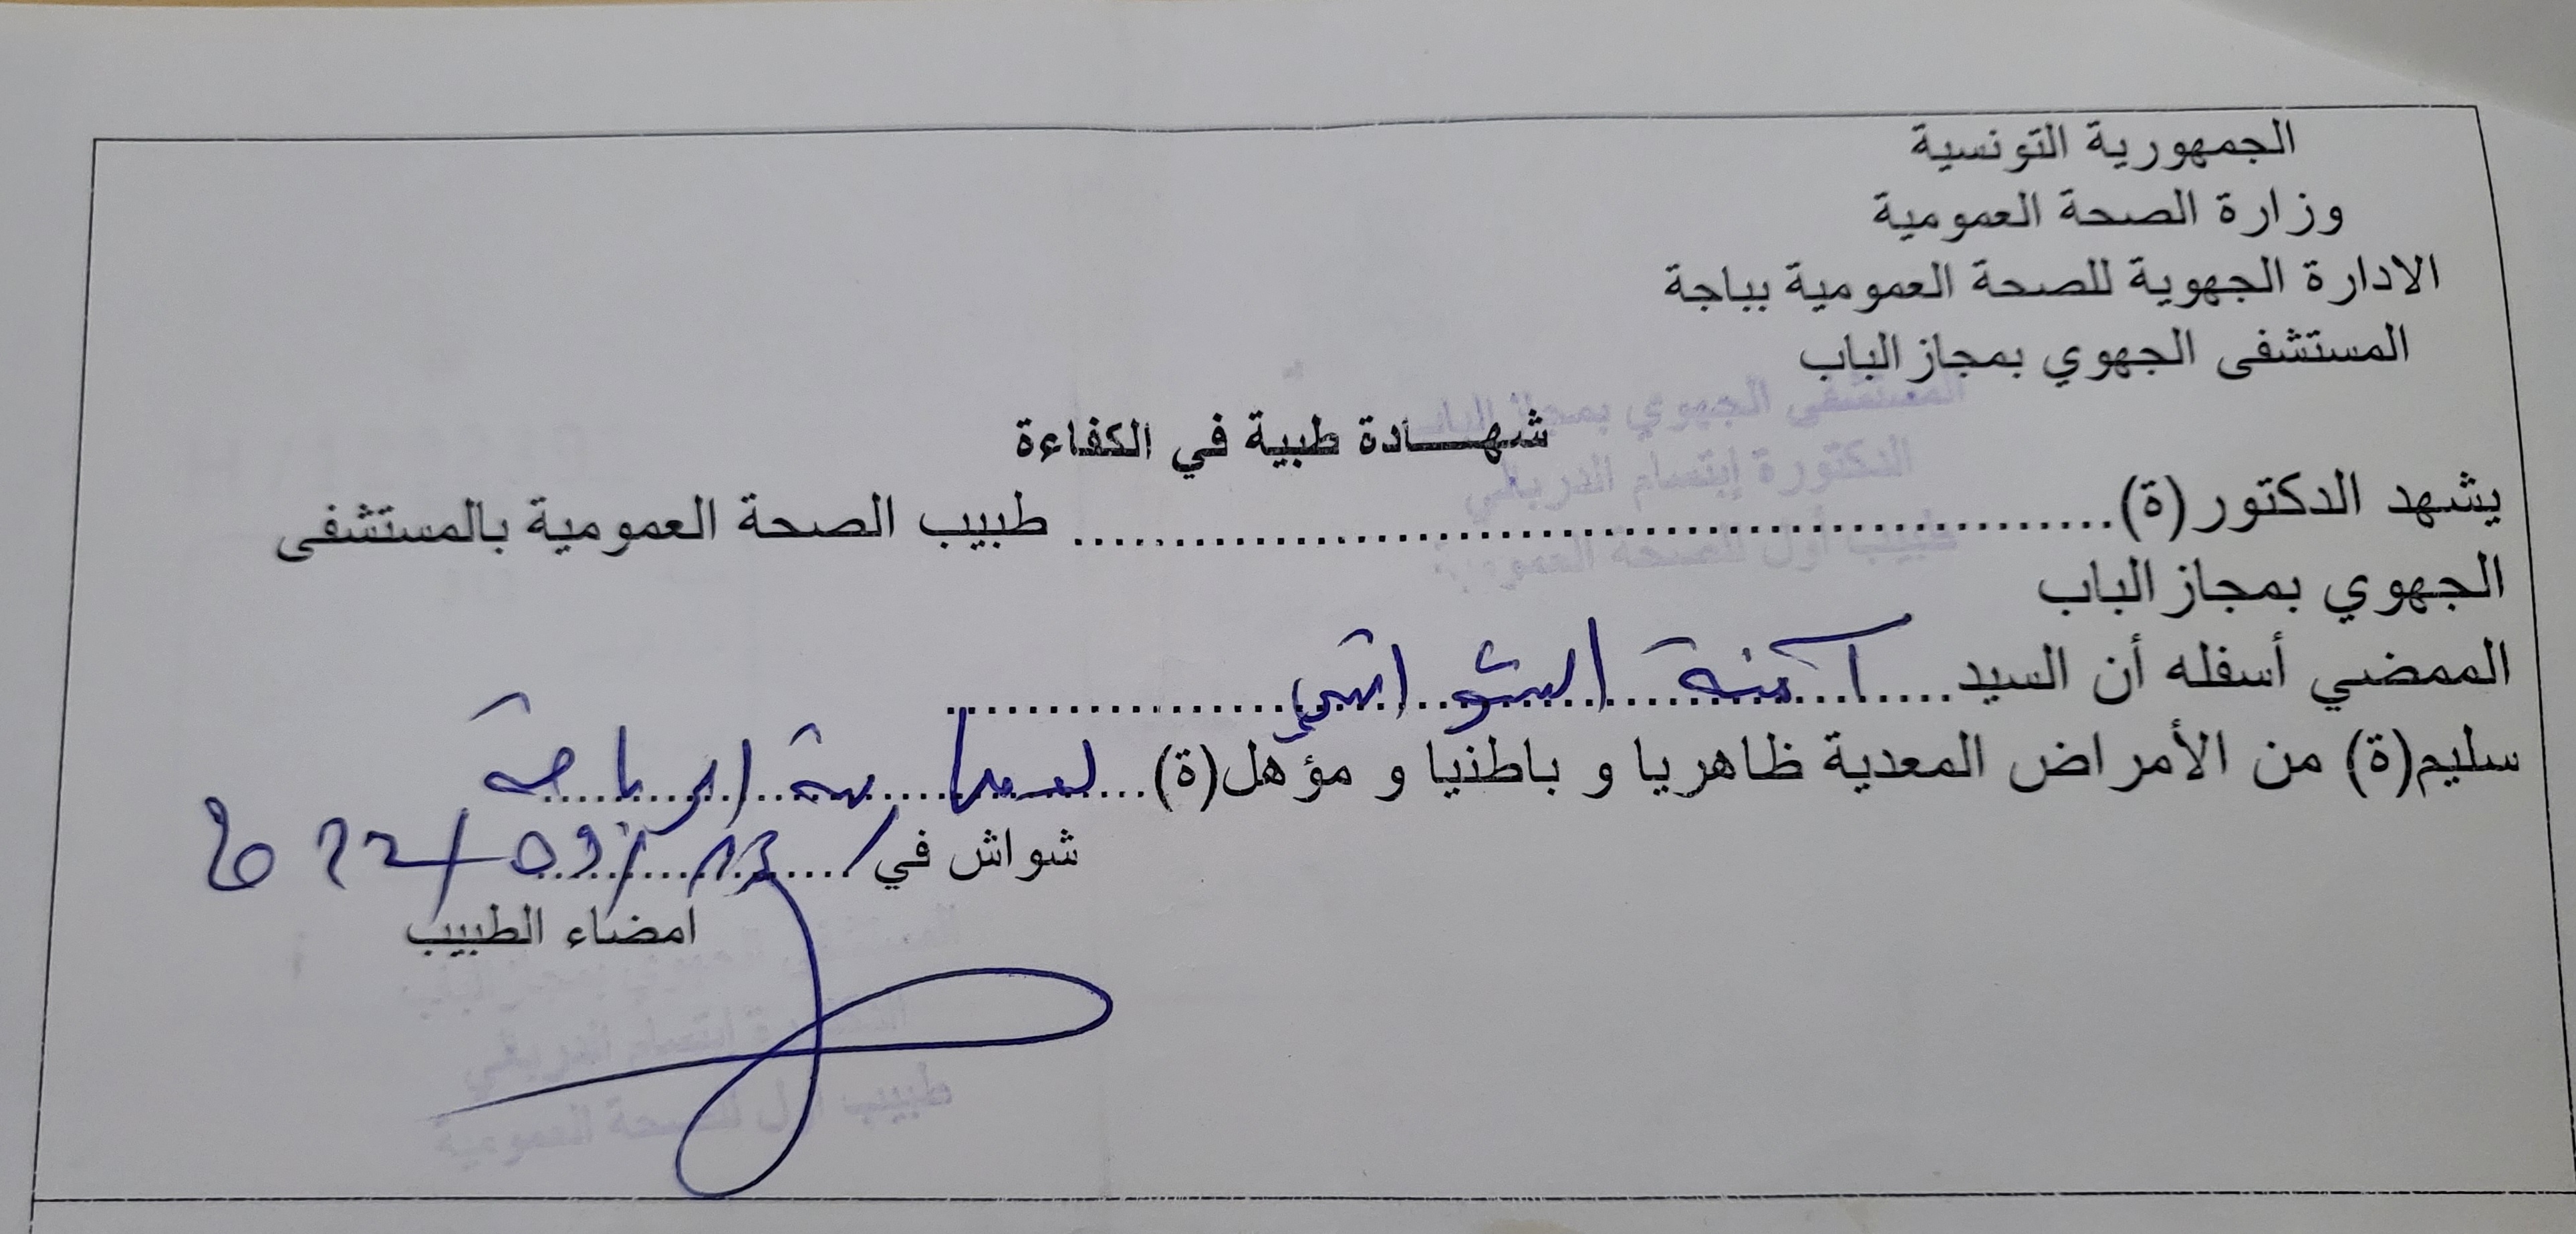 الجمهورية التونسية
وزارة الصحة العمومية
الادارة الجهوية للصحة العمومية بباجة
المستشفى الجهوي بمجاز الباب
شهـــادة طبية في الكفاءة
المستشفى الجهوي بمجاز الباب
الدكتورة إبتسام الدريقي
طبيب أول للصحة العمومية
يشهد الدكتور(ة)........................................................ طبيب الصحة العمومية بالمستشفى
الجهوي بمجاز الباب
الممضي أسفله أن السيد.....آمنة الشواشي.....
سليم(ة) من الأمراض المعدية ظاهريا و باطنيا و مؤهل(ة).....لممارسة الرياضة
شواش في/13/09/2022
امضاء الطبيب
المستشفى الجهوي بمجاز الباب
الدكتورة ابتسام الدريقي
طبيب أول للصحة العمومية